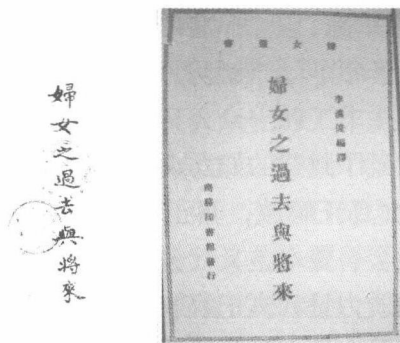 婦女之過去與將來
婦女叢書
李漢俊編譯
婦女之過去與將來
商務印書館發行